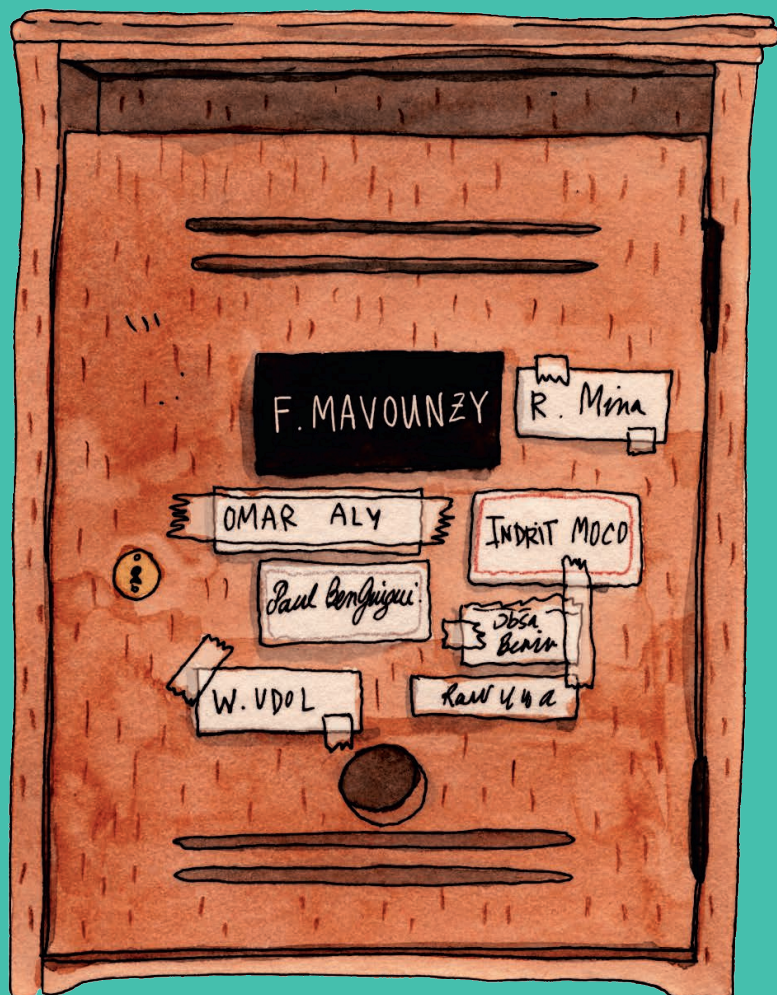 F. MAVOUNZY
R. Mina
OMAR ALY
INDRIT MOCO
Paul BenGuigui
Obsa
Benin
W. UDOL